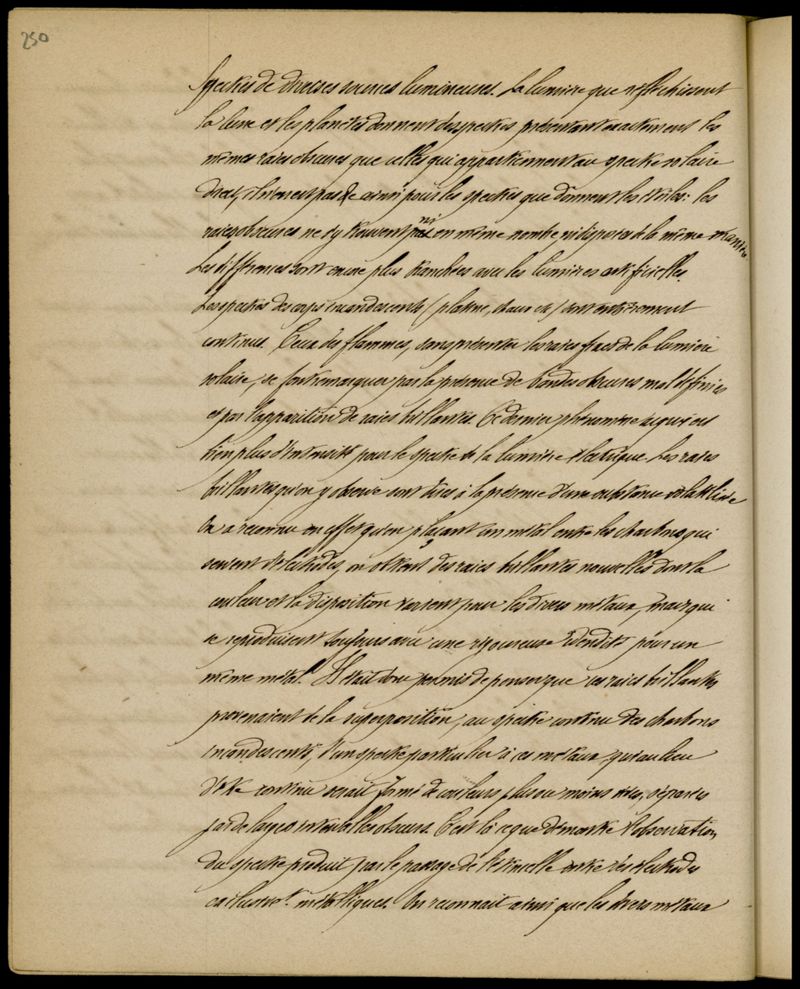 250
Spectres de diverses sources lumineuses. La lumière que réfléchissent
la lune et les planètes donnent des spectres présentant exactement les
mêmes raies obscures que celles qui appartiennent au spectre solaire
direct, il n'en est pas de ainsi pour les spectres que donnent les étoiles: les
raies obscures ne s'y trouvent pas ni en même nombre, ni disposées de la même manière
Les différences sont encore plus tranchées avec les lumières artificielles.
Les spectres des corps incandescents (platine, chaux etc) sont entièrement
continus. Ceux des flammes, sans présenter les raies fixes de la lumière
solaire, se font remarquer par la présence de bandes obscures mal définies
et par l'apparition de raies brillantes. Ce dernier phénomène acquiert
bien plus d'intensité pour le spectre de la lumière électrique. Les raies
brillantes qu'on y observe sont dues à la présence d'une substance volatilisée
On a reconnu en effet qu'en plaçant un métal entre les charbons qui
servent d'électrodes, on obtient des raies brillantes nouvelles dont la
couleur et la disposition varient pour les divers métaux, mais qui
se reproduisent toujours avec une rigoureuse identité pour un
même métal. Il était donc permis de penser que ces raies brillantes
provenaient de la superposition, au spectre continu des charbons
incandescents, d'un spectre particulier à ces métaux, qui au lieu
d'être continu serait formé de couleurs plus ou moins vives, séparées
par de larges intervalles obscurs. C'est là ce que démontre l'observation
du spectre produit par le passage de l'étincelle entre des électrodes
métalliques. On reconnaît ainsi que les divers métaux